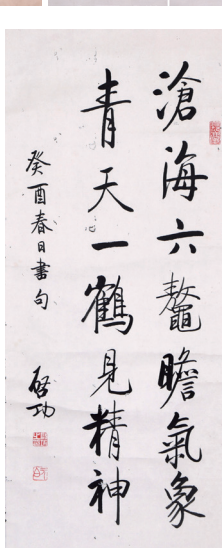 滄海六鼇瞻氣象
青天一鶴見精神
癸酉春日書句
啓功